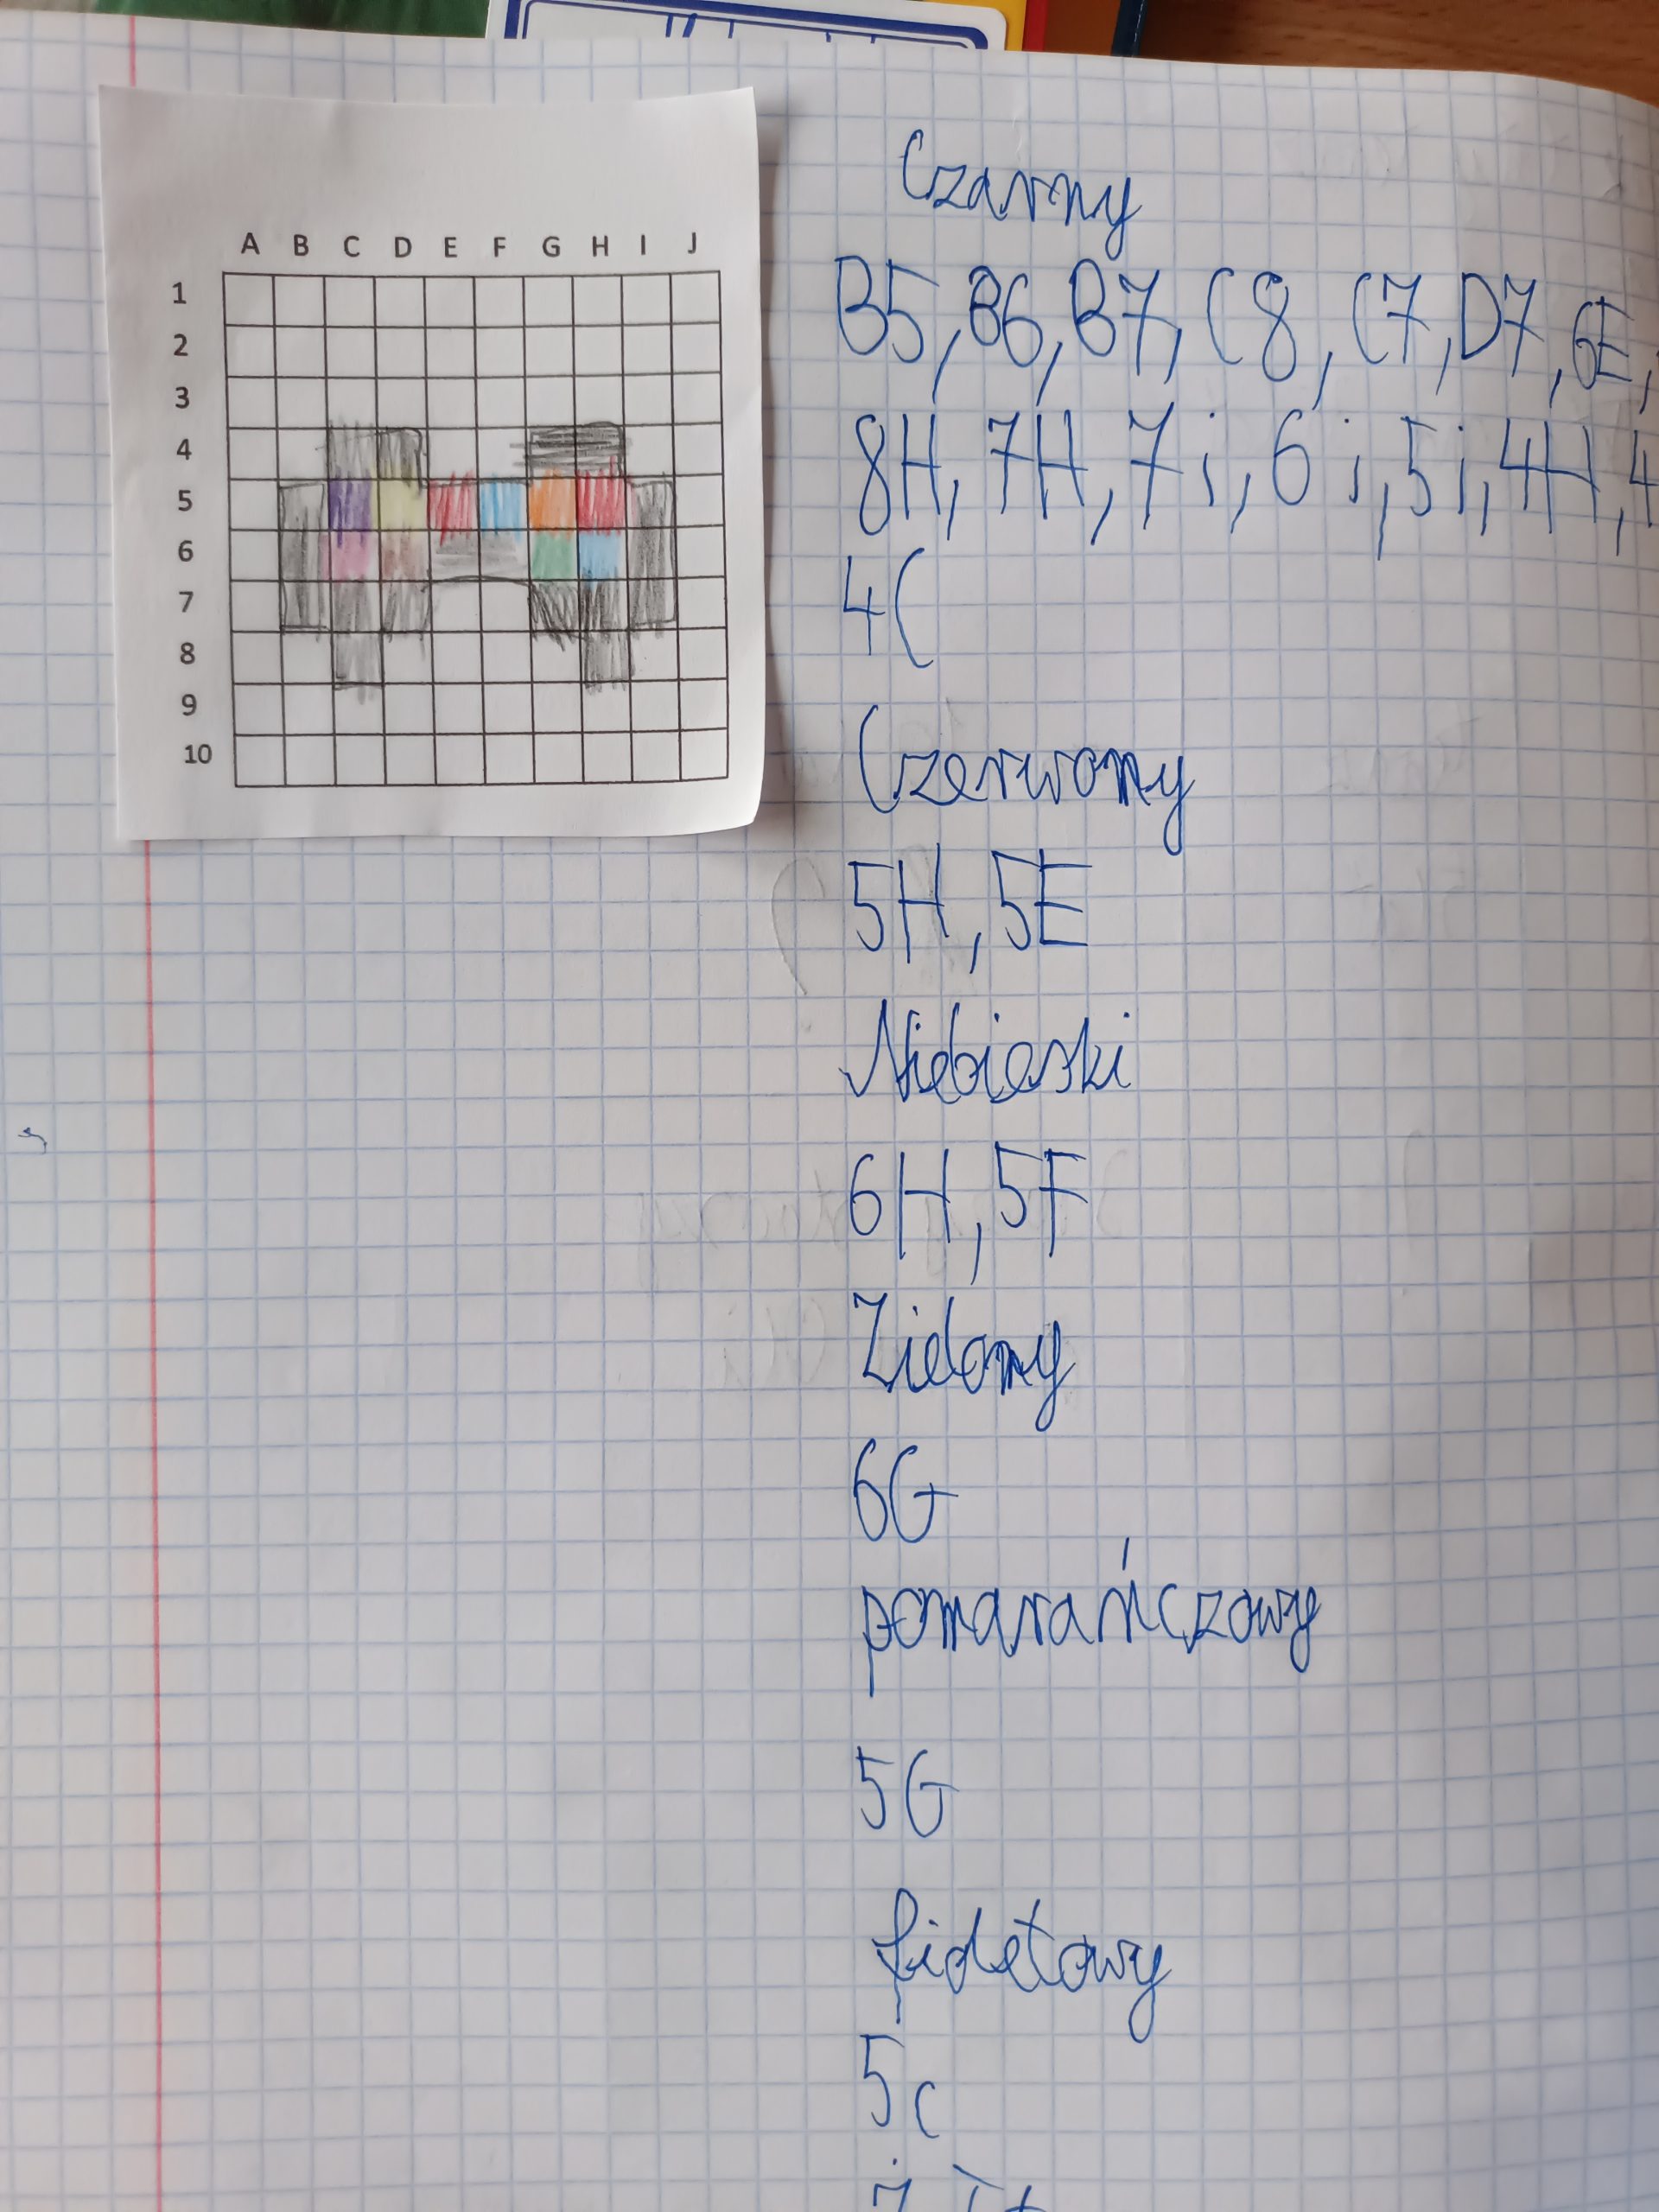 A B C D E F G H I J
1
2
3
4
5
6
7
8
9
10
Czarny
B5, B6, B7, C8, C7, D7, 6E,
8H, 7H, 7i, 6i, 5i, 4H, 4
4C
Czerwony
5H, 5E
Niebieski
6H, 5F
Zielony
6G
pomarańczowy
5G
fioletowy
5c